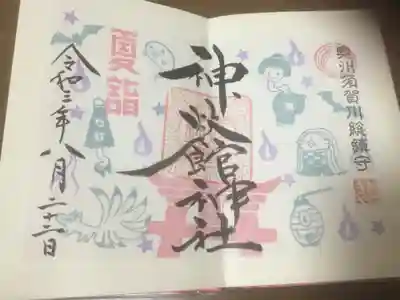 奥州須賀川総鎮守
神炊館神社
夏詣
令和二年八月二十二日